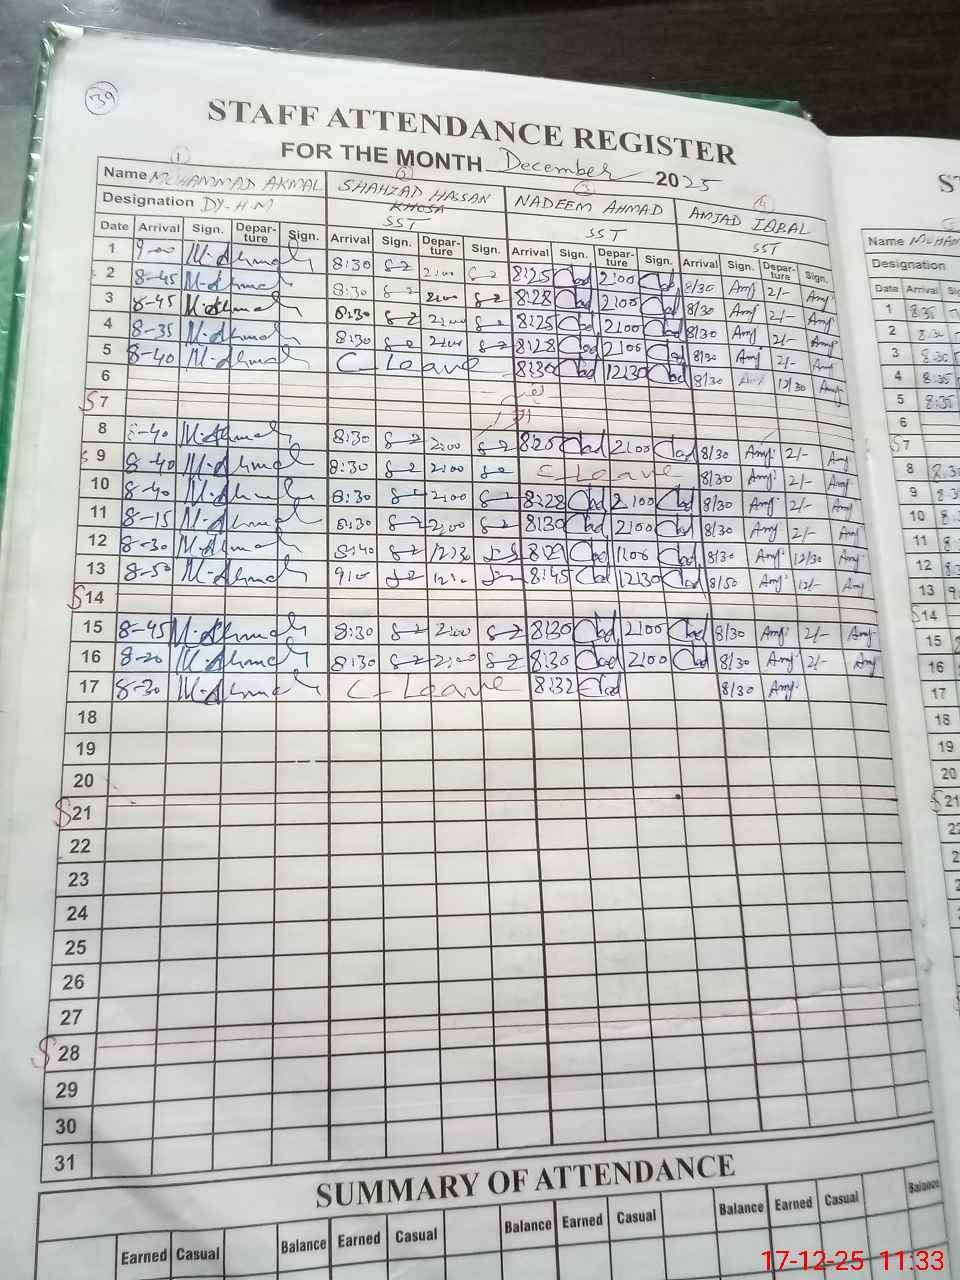 39
STAFF ATTENDANCE REGISTER
FOR THE MONTH December 2025
1 2 3 4
Name MUHAMMAD AKMAL SHAHZAD HASSAN KHOSA NADEEM AHMAD AMJAD IQBAL
Designation DY-H.M SST SST SST
Date Arrival Sign. Departure Sign. Arrival Sign. Departure Sign. Arrival Sign. Departure Sign. Arrival Sign. Departure Sign.
1 9-00 M.Akmal 8:30 2:00 8:25 2:00 8/30 Amj 2/- Amj
2 8-45 M.Akmal 8:30 2:00 8:28 2:00 8/30 Amj 2/- Amj
3 8-45 M.Akmal 8:30 2:00 8:25 2:00 8/30 Amj 2/- Amj
4 8-35 M.Akmal 8:30 2:00 8:28 2:00 8/30 Amj 2/- Amj
5 8-40 M.Akmal C-Leave 8:30 12:30 8/30 Amj 12/30 Amj
6
S 7
8 8-40 M.Akmal 8:30 2:00 8:25 2:00 8/30 Amj 2/- Amj
9 8-40 M.Akmal 8:30 2:00 C-Leave 8/30 Amj 2/- Amj
10 8-40 M.Akmal 8:30 2:00 8:28 2:00 8/30 Amj 2/- Amj
11 8-15 M.Akmal 8:30 2:00 8:30 2:00 8/30 Amj 2/- Amj
12 8-30 M.Akmal 8:40 12:30 8:29 8/30 Amj 12/30 Amj
13 8-50 M.Akmal 8:45 12:30 8/50 Amj 12/- Amj
S 14
15 8-45 M.Akmal 8:30 2:00 8:30 2:00 8/30 Amj 2/- Amj
16 8-20 M.Akmal 8:30 2:00 8:30 2:00 8/30 Amj 2/- Amj
17 8-30 M.Akmal C-Leave 8:32 8/30 Amj
18
19
20
S 21
22
23
24
25
26
27
S 28
29
30
31
SUMMARY OF ATTENDANCE
Earned Casual Balance Earned Casual Balance Earned Casual Balance Earned Casual Balance
Name MUHAM
Designation
Date Arrival
1 8:35
2 8:30
3 8:30
4 8:35
5 8:35
6
S 7
8 8:30
9
10
11
12
13
S 14
15
16
17
18
19
20
S 21
17-12-25 11:33